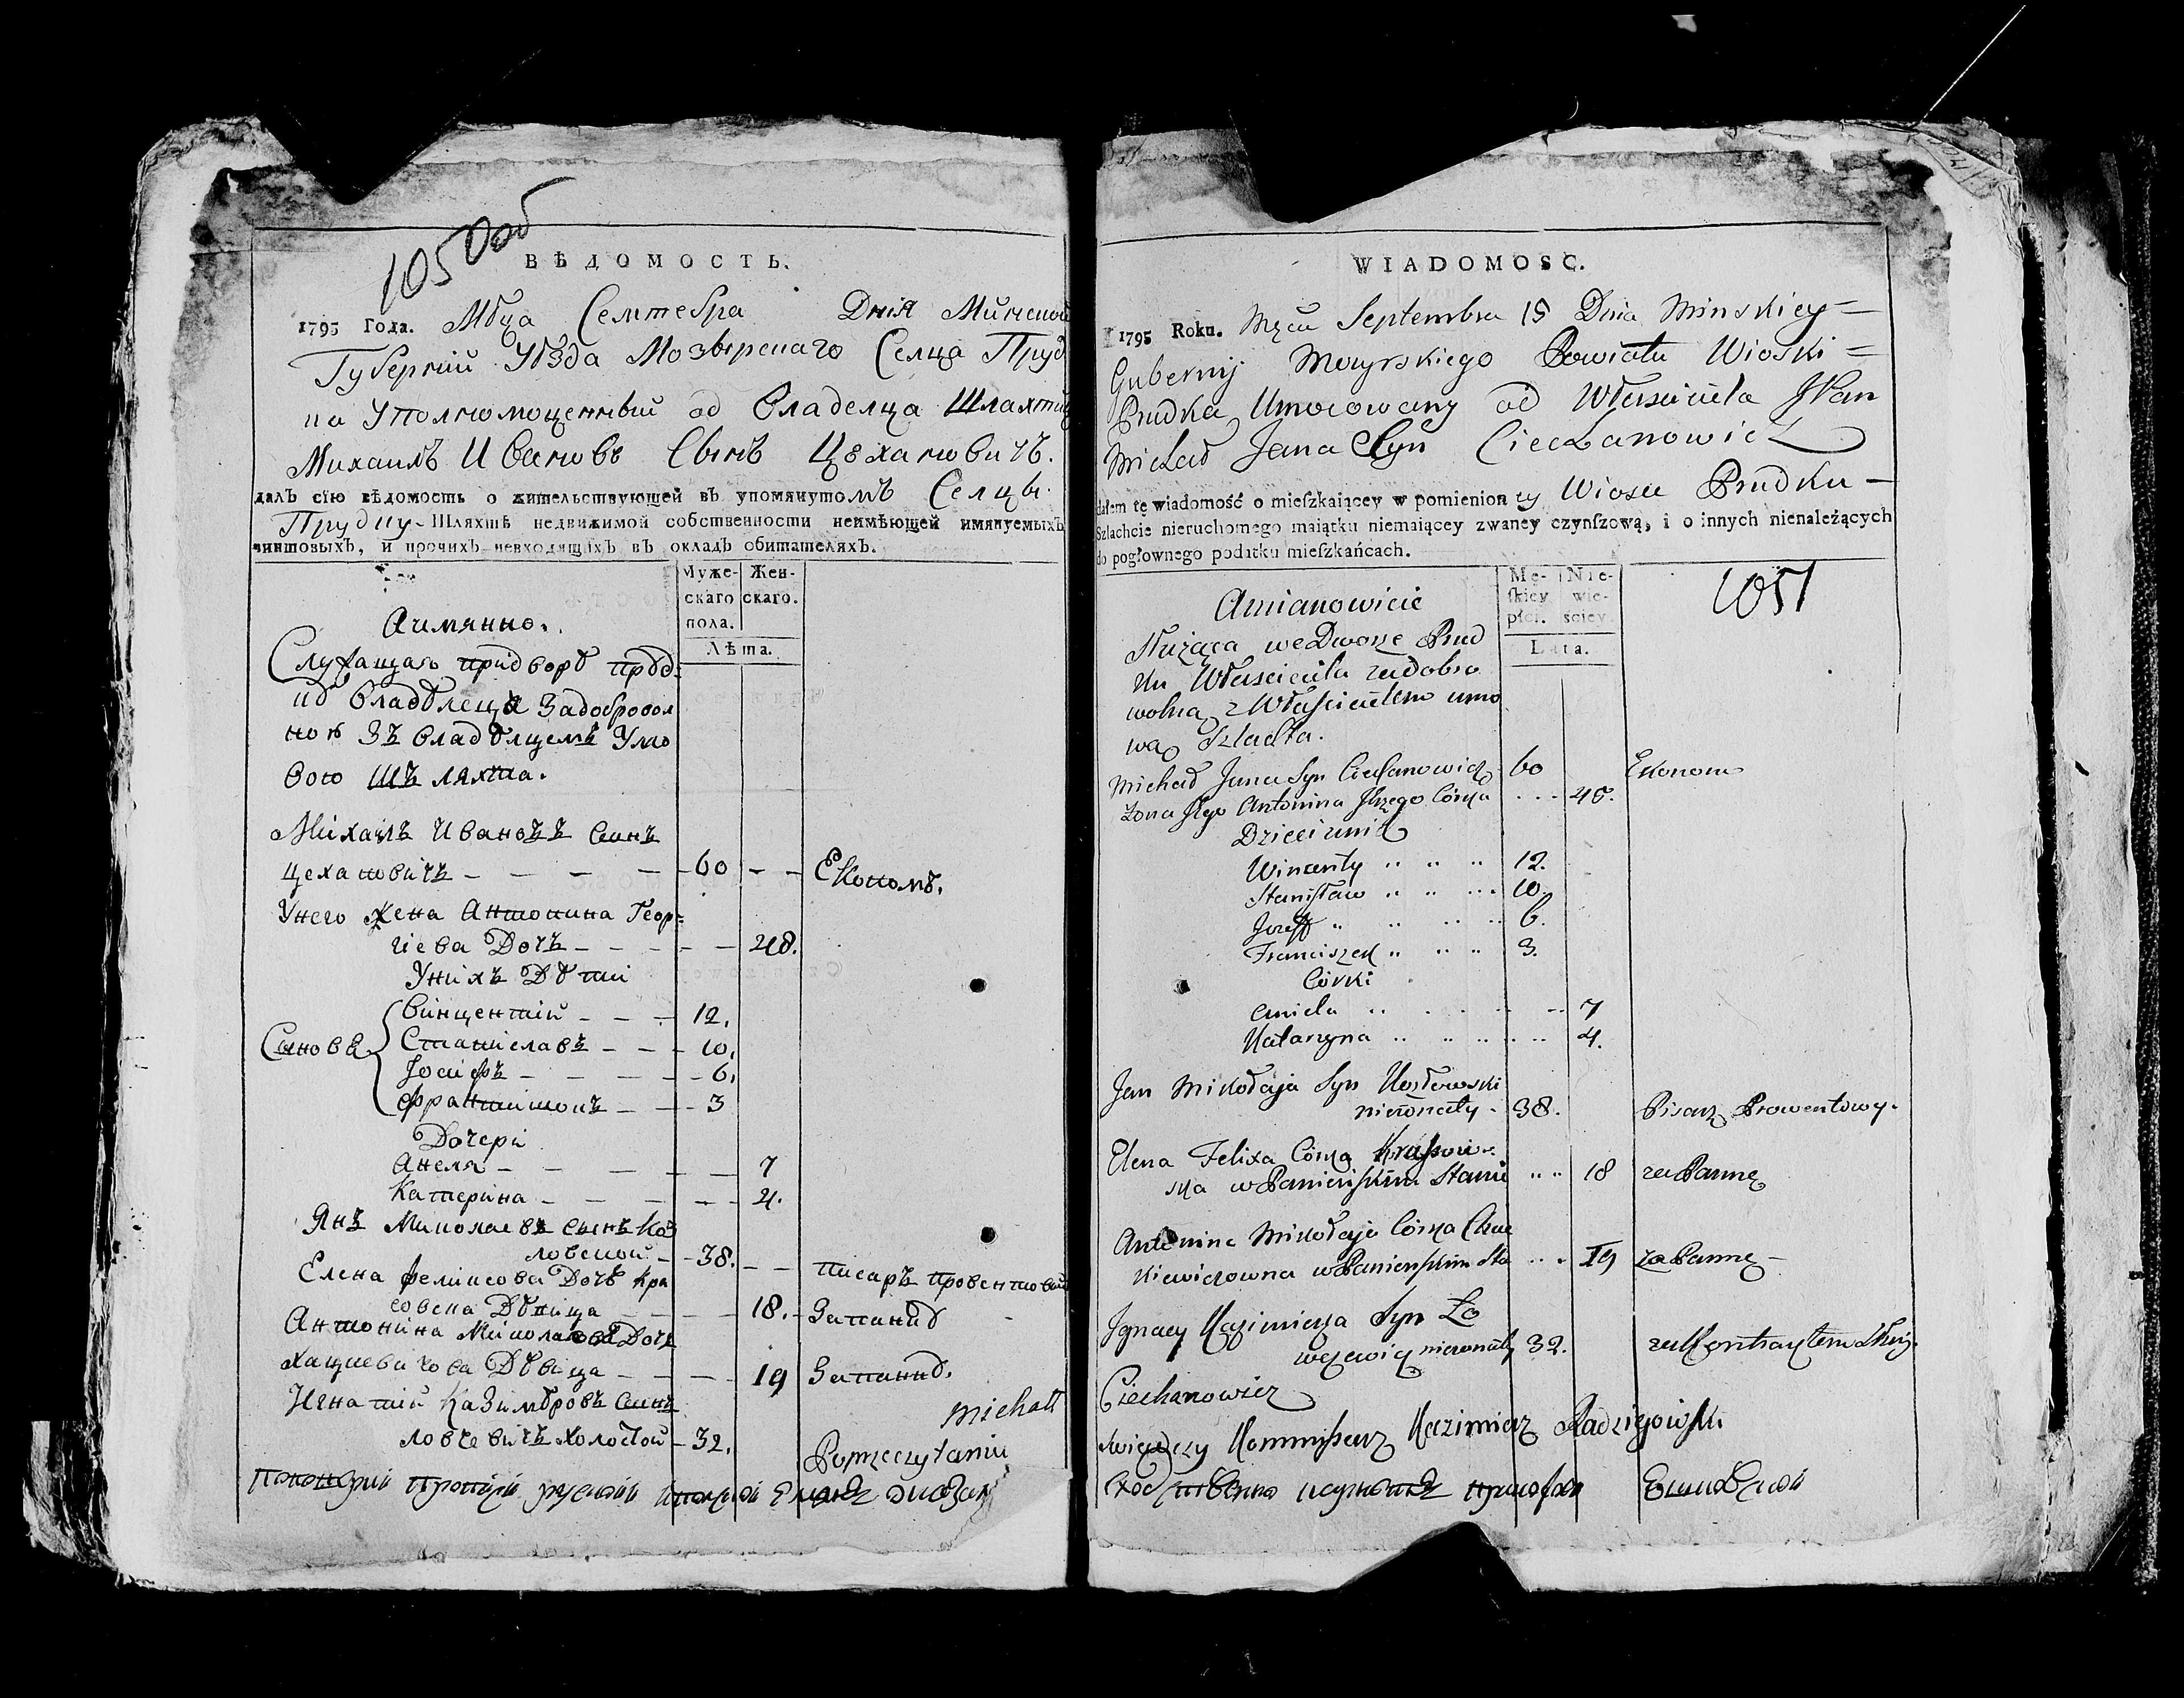 1050 об
ВѢДОМОСТЬ.
1795 Года. Мѣца Семтебра Дня Минской
Губерній Уѣзда Мозырскаго Селца Пруд
ка Уполномоценный од Владелца Шляхтиц
Михаилъ Ивановъ Сынъ Цѣхановичъ.
далъ сію вѣдомость о жительствующей въ упомянутомъ Селцы
Прудку Шляхтѣ недвижимой собственности неимѣющей имянуемыхъ
чиншовыхъ, и прочихъ невходящихъ въ окладъ обитателяхъ.
Муже- Жен-
скаго скаго.
пола.
Лѣта.
Аимянно.
Служащаго придворѣ прод:
иѣ Владѣлеца Задобровол
ною Зъ Владѣлцемъ Умо
вою Шъляхта.
Михаилъ Ивановъ Сынъ
Цехановичъ - - - - 60 - - Економъ.
Унего жена Антонина Геор=
гіева Дочъ - - - - - 48.
Унихъ Дѣти
Винцентій - - - 12.
Сыновя Станиславъ - - - 10.
Іосифъ - - - - 6.
Францишокъ - - - 3
Дочери
Анеля - - - - - 7
Катерина - - - - - 4.
Янъ Миколаевъ сынъ Коз
ловской - - 38. - - писаръ провентовый
Елена Феликсова Дочъ Кра
совска Дѣвица - - - 18. - Запаннѣ
Антонина Миколаева Дочъ
Хацкевичова Дѣвица - - - 19 Запаннѣ.
Игнатій Казимѣровъ Сынъ
Ловчевичъ Холостой - 32.
Michał
Poprzeczytaniu
WIADOMOSC.
1795 Roku. Męca Septembra 15 Dnia Minskiey =
Gubernij Mozyrskiego Powiatu Wioski =
Prudka Umocowany od Właściciela JPan
Michał Jana Syn Ciechanowicz
dałem tę wiadomość o mieſzkaiącey w pomienioney Wiosce Prudku -
Szlachcie nieruchomego maiątku niemaiącey zwaney czynſzową, i o innych nienależących
do pogłownego podatku mieſzkańcach.
Mę- Nie-
ſkiey wie-
płci. sciey.
Lata.
1051
Amianowicie
Służąca weDworze Prud
ku Właściciela zadobro
wolną z Właścicielem umo
wą Szlachta.
Michał Jana Syn Ciechanowicz 60 Ekonom
Żona Jego Antonina Jerzego Córka - - - 48.
Dzieci unich
Wincenty .. .. .. 12.
Stanisław .. .. ... 10.
Jozeff .. .. .. .. 6.
Franciszek .. .. .. 3.
Córki
Aniela .. .. .. .. 7
Katarzyna .. .. .. .. 4.
Jan Mikołaja Syn Kozłowski
nieżonaty - 38. Pisarz Prowentowy.
Elena Felixa Córka Krassow-
ska w Panieńskim Stanie .. .. 18 za Pannę
Antonina Mikołaja Córka Chac
kiewiczowna w Panieńskim Sta ... 19 za Pannę -
Ignacy Kazimierza Syn Ło
wczewicz nieżonaty 32. za Kontraktem Służy.
Ciechanowicz
Kommissarz Kazimierz Radziejowski